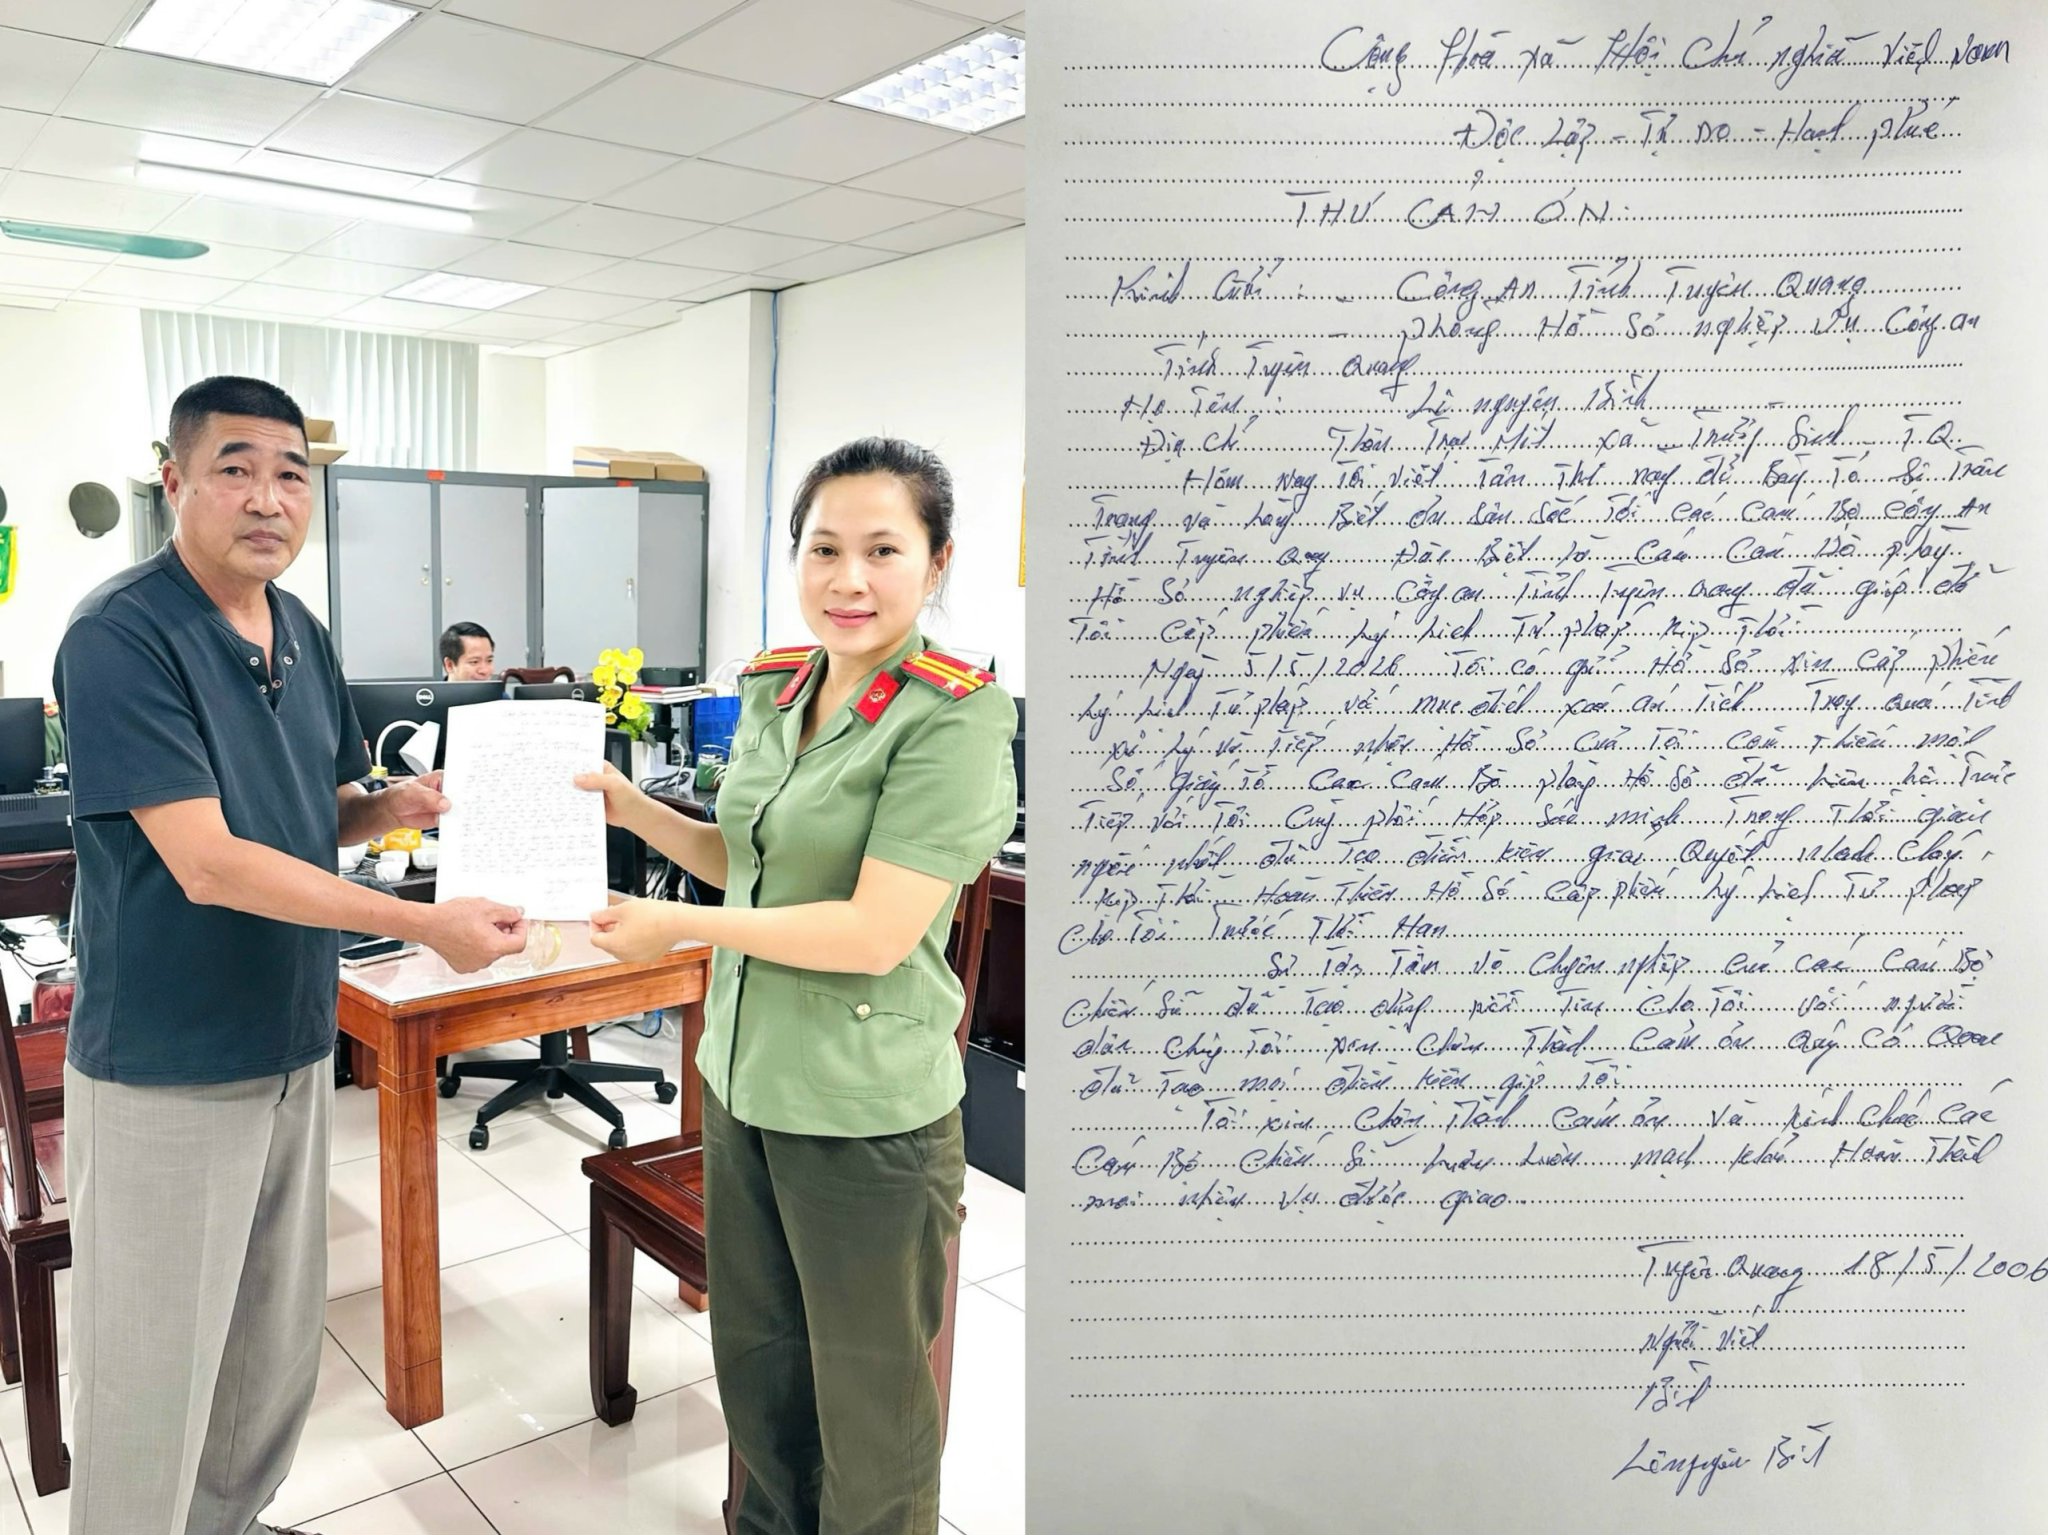 Cộng Hoà xã Hội Chủ nghĩa Việt Nam
Độc Lập - Tự Do - Hạnh phúc
THƯ CẢM ƠN.
Kính Gửi : - Công An Tỉnh Tuyên Quang
- phòng Hồ Sơ nghiệp vụ Công an
Tỉnh Tuyên Quang
Họ Tên : Lê nguyên Bình
Địa chỉ Thôn Trại Mít xã Trường Sinh - TQ
Hôm nay Tôi viết Tâm Thư này để Bày Tỏ Sự Trân
Trọng và Lòng Biết ơn Sâu Sắc Tới các Cán Bộ Công An
Tỉnh Tuyên Quang Đặc Biệt là Các Cán Bộ phòng
Hồ Sơ nghiệp vụ Công an Tỉnh Tuyên Quang đã giúp đỡ
Tôi Cấp phiếu Lý Lịch Tư pháp kịp Thời
Ngày 5/5/2026 Tôi có gửi Hồ Sơ xin Cấp phiếu
Lý Lịch Tư pháp với mục đích xoá án Tích Trong quá Tình
xử Lý và Tiếp nhận Hồ Sơ Của Tôi Còn Thiếu một
Số giấy Tờ Các Cán Bộ phòng Hồ Sơ đã Liên hệ Trực
Tiếp với Tôi Cùng phối Hợp Sác minh Trong Thời gian
ngắn nhất để Tạo điều kiện giải Quyết nhanh Chóng,
kịp Thời Hoàn Thiện Hồ Sơ Cấp phiếu Lý Lịch Tư pháp
Cho Tôi Trước Thời Hạn
Sự Tận Tâm và Chuyên nghiệp Của các Cán Bộ
Chiến Sĩ đã Tạo dựng niềm Tin Cho Tôi với người
dân Chúng Tôi xin Chân Thành Cảm ơn Quý Cơ Quan
đã Tạo mọi điều kiện giúp Tôi
Tôi xin Chân Thành Cảm ơn Và kính Chúc Các
Cán Bộ Chiến Sĩ Luôn Luôn mạnh khoẻ Hoàn Thành
mọi nhiệm vụ được giao
Tuyên Quang 18/5/2006
Người viết
Bình
Lê nguyên Bình
DELL